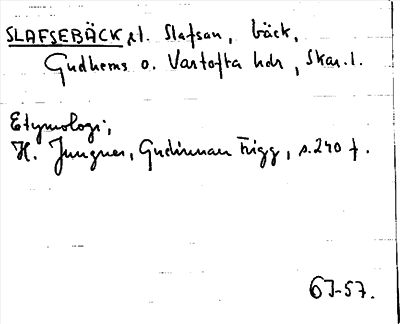 SLAFSEBÄCK el. Slafsan, bäck,
Gudhems o. Vartofta hdr, Skar. l.
Etymologi;
H. Jungner, Gudinnan Frigg, s. 240 f.
GJ-57.